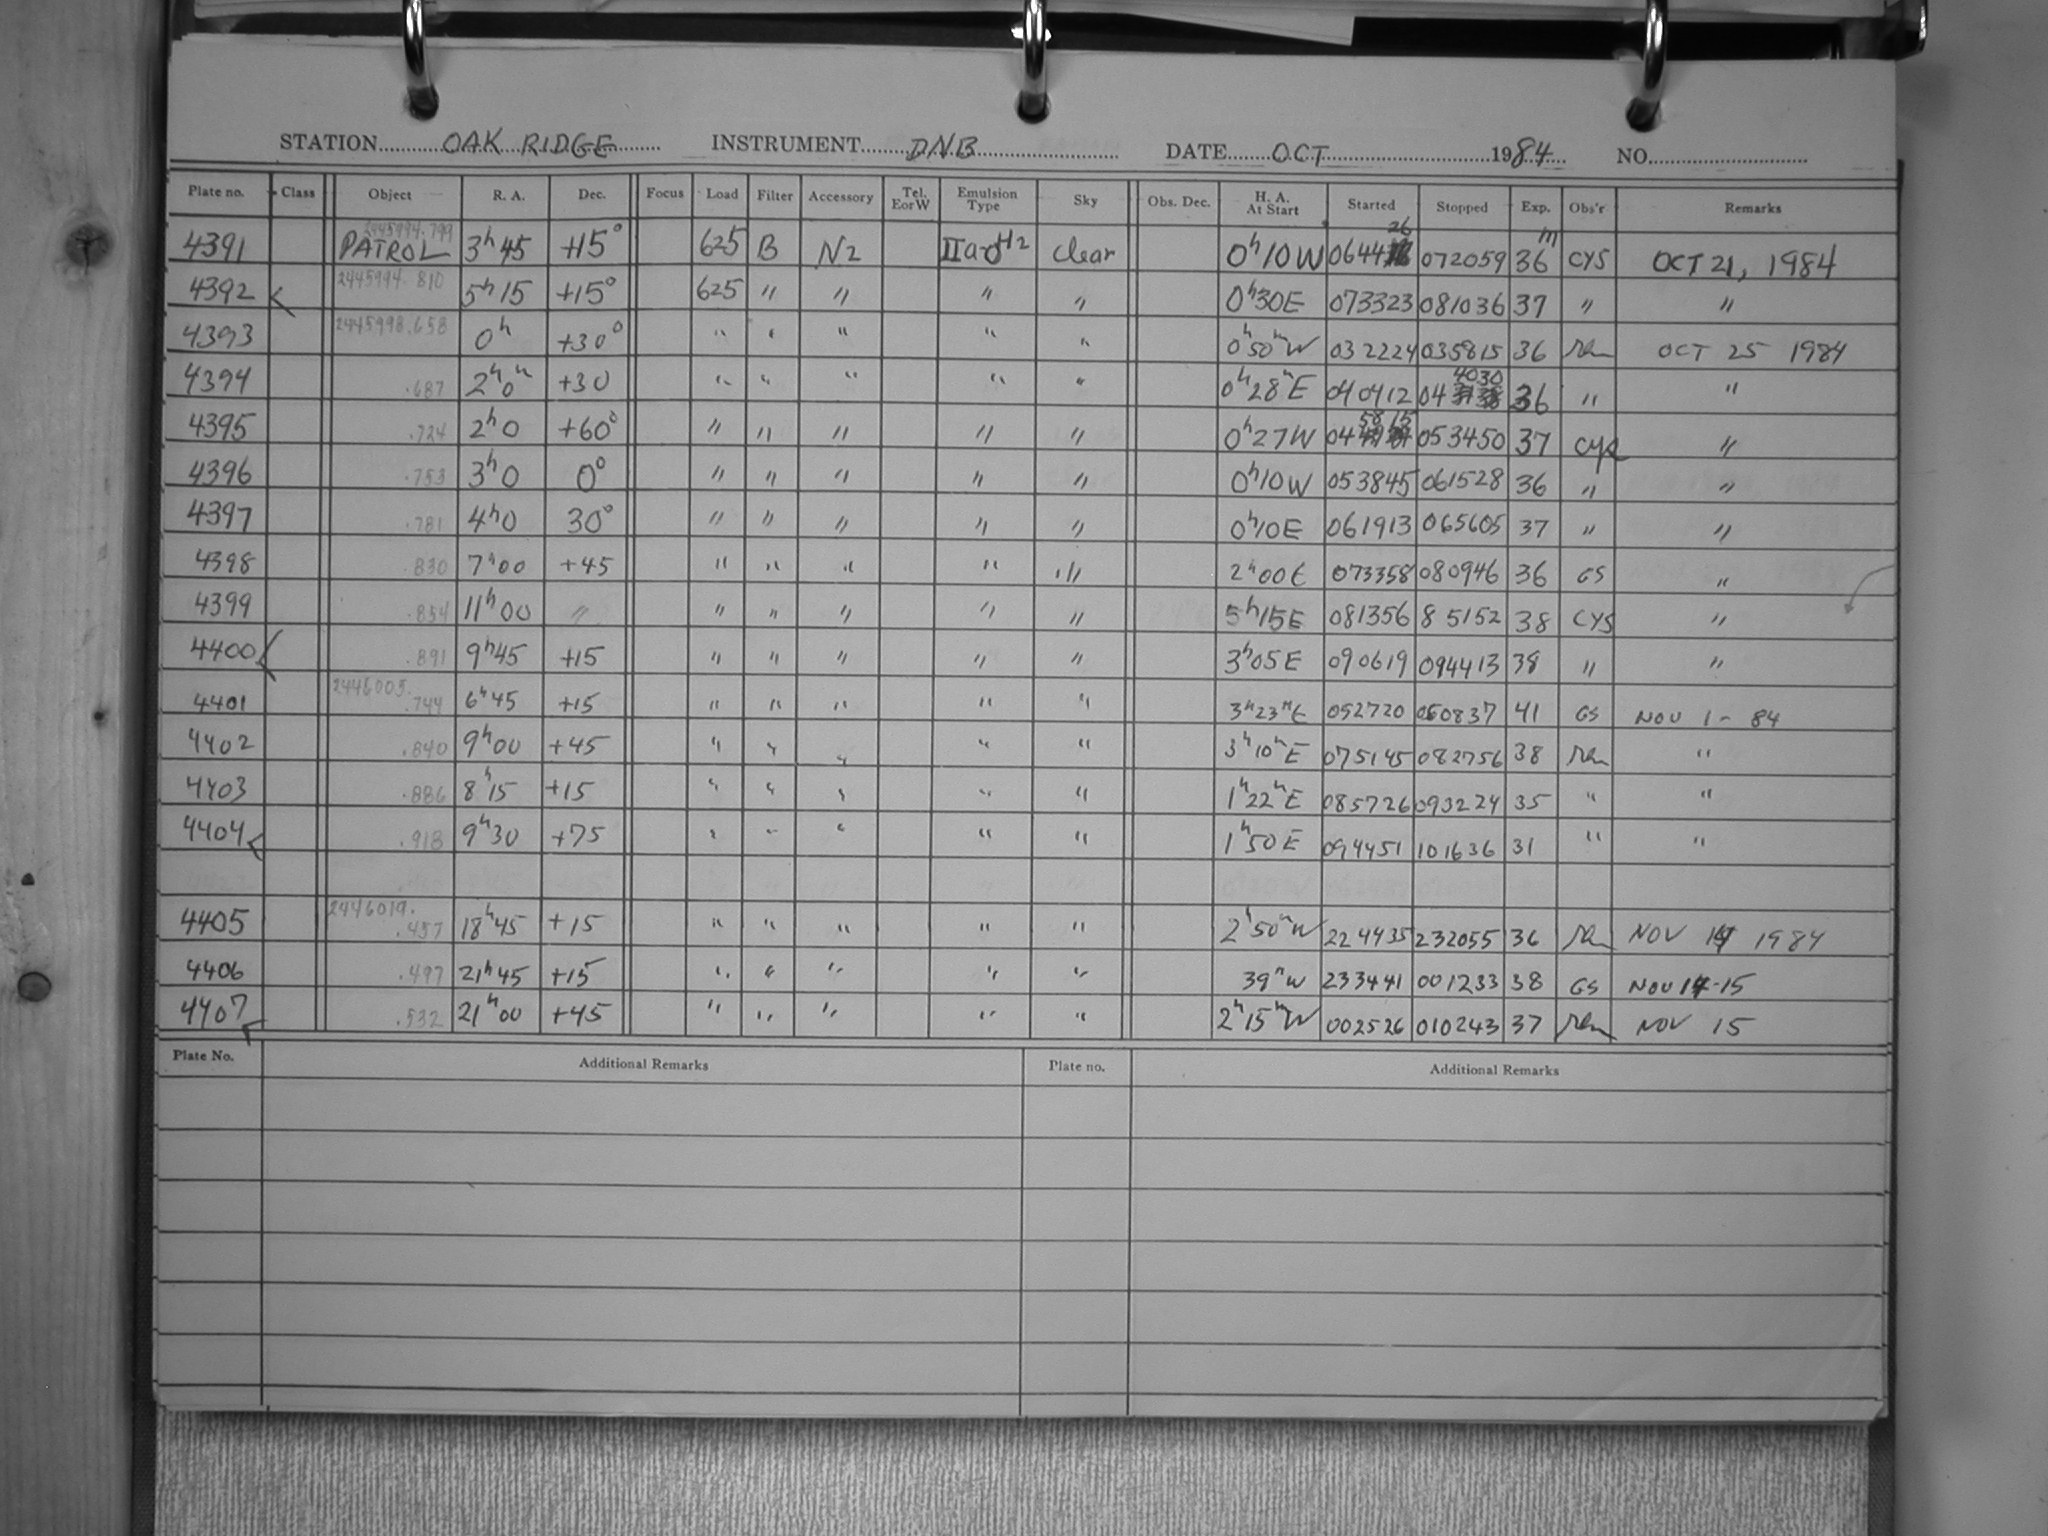 STATION OAK RIDGE INSTRUMENT DNB DATE OCT 1984 NO.
Plate no. Class Object R. A. Dec. Focus Load Filter Accessory Tel. E or W Emulsion Type Sky Obs. Dec. H. A. At Start Started Stopped Exp. Obs'r Remarks
4391 2445994.799 PATROL 3h45 +15° 625 B N2 IIa-O H2 clear 0h10W 064426 072059 36m CYS OCT 21, 1984
4392 2445994.810 5h15 +15° 625 " " " " 0h30E 073323 081036 37 " "
4393 2445998.658 0h +30° " " " " " 0h50mW 032224 035815 36 OCT 25 1984
4394 .687 2h0m +30 " " " " " 0h28mE 040412 044030 36 " "
4395 .724 2h0 +60° " " " " " 0h27W 045815 053450 37 CYS "
4396 .753 3h0 0° " " " " " 0h10W 053845 061528 36 " "
4397 .781 4h0 30° " " " " " 0h10E 061913 065605 37 " "
4398 .830 7h00 +45 " " " " " 2h00E 073358 080946 36 GS "
4399 .854 11h00 " " " " " " 5h15E 081356 85152 38 CYS "
4400 .891 9h45 +15 " " " " " 3h05E 090619 094413 38 " "
4401 2446005. .744 6h45 +15 " " " " " 3h23mE 052720 060837 41 GS NOV 1 - 84
4402 .840 9h00 +45 " " " " " 3h10mE 075145 082756 38 "
4403 .886 8h15 +15 " " " " " 1h22mE 085726 093224 35 " "
4404 .918 9h30 +75 " " " " " 1h50E 094451 101636 31 " "
4405 2446019. .457 18h45 +15 " " " " " 2h50mW 224435 232055 36 NOV 14 1984
4406 .497 21h45 +15 " " " " " 39mW 233441 001233 38 GS NOV 14-15
4407 .532 21h00 +45 " " " " " 2h15mW 002526 010243 37 NOV 15
Plate No. Additional Remarks Plate no. Additional Remarks